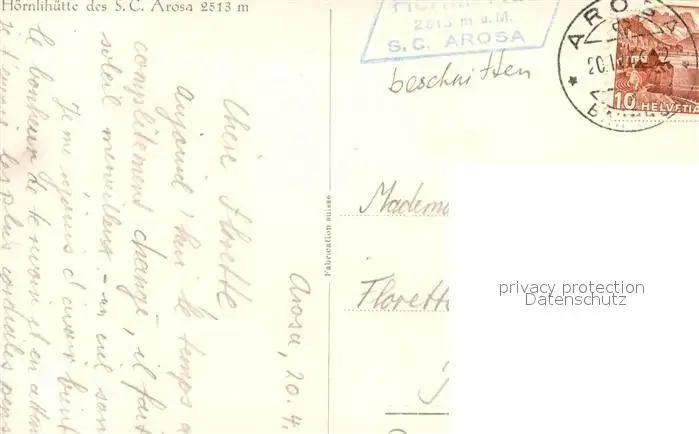 Hörnlihütte des S. C. Arosa 2513 m
2513 m ü. M.
S. C. AROSA
beschnitten
AROSA
20.IV
10 HELVETIA
Fabrication suisse
Arosa, 20.4.
Chère Florette
Aujourd'hui le temps a
complètement changé, il fait
soleil merveilleux - un ciel sans
Je me réjouis d'avoir bient
le bonheur de te revoir et en atten
je t'envoie les plus cordiales pens
Madem
Florett
privacy protection
Datenschutz